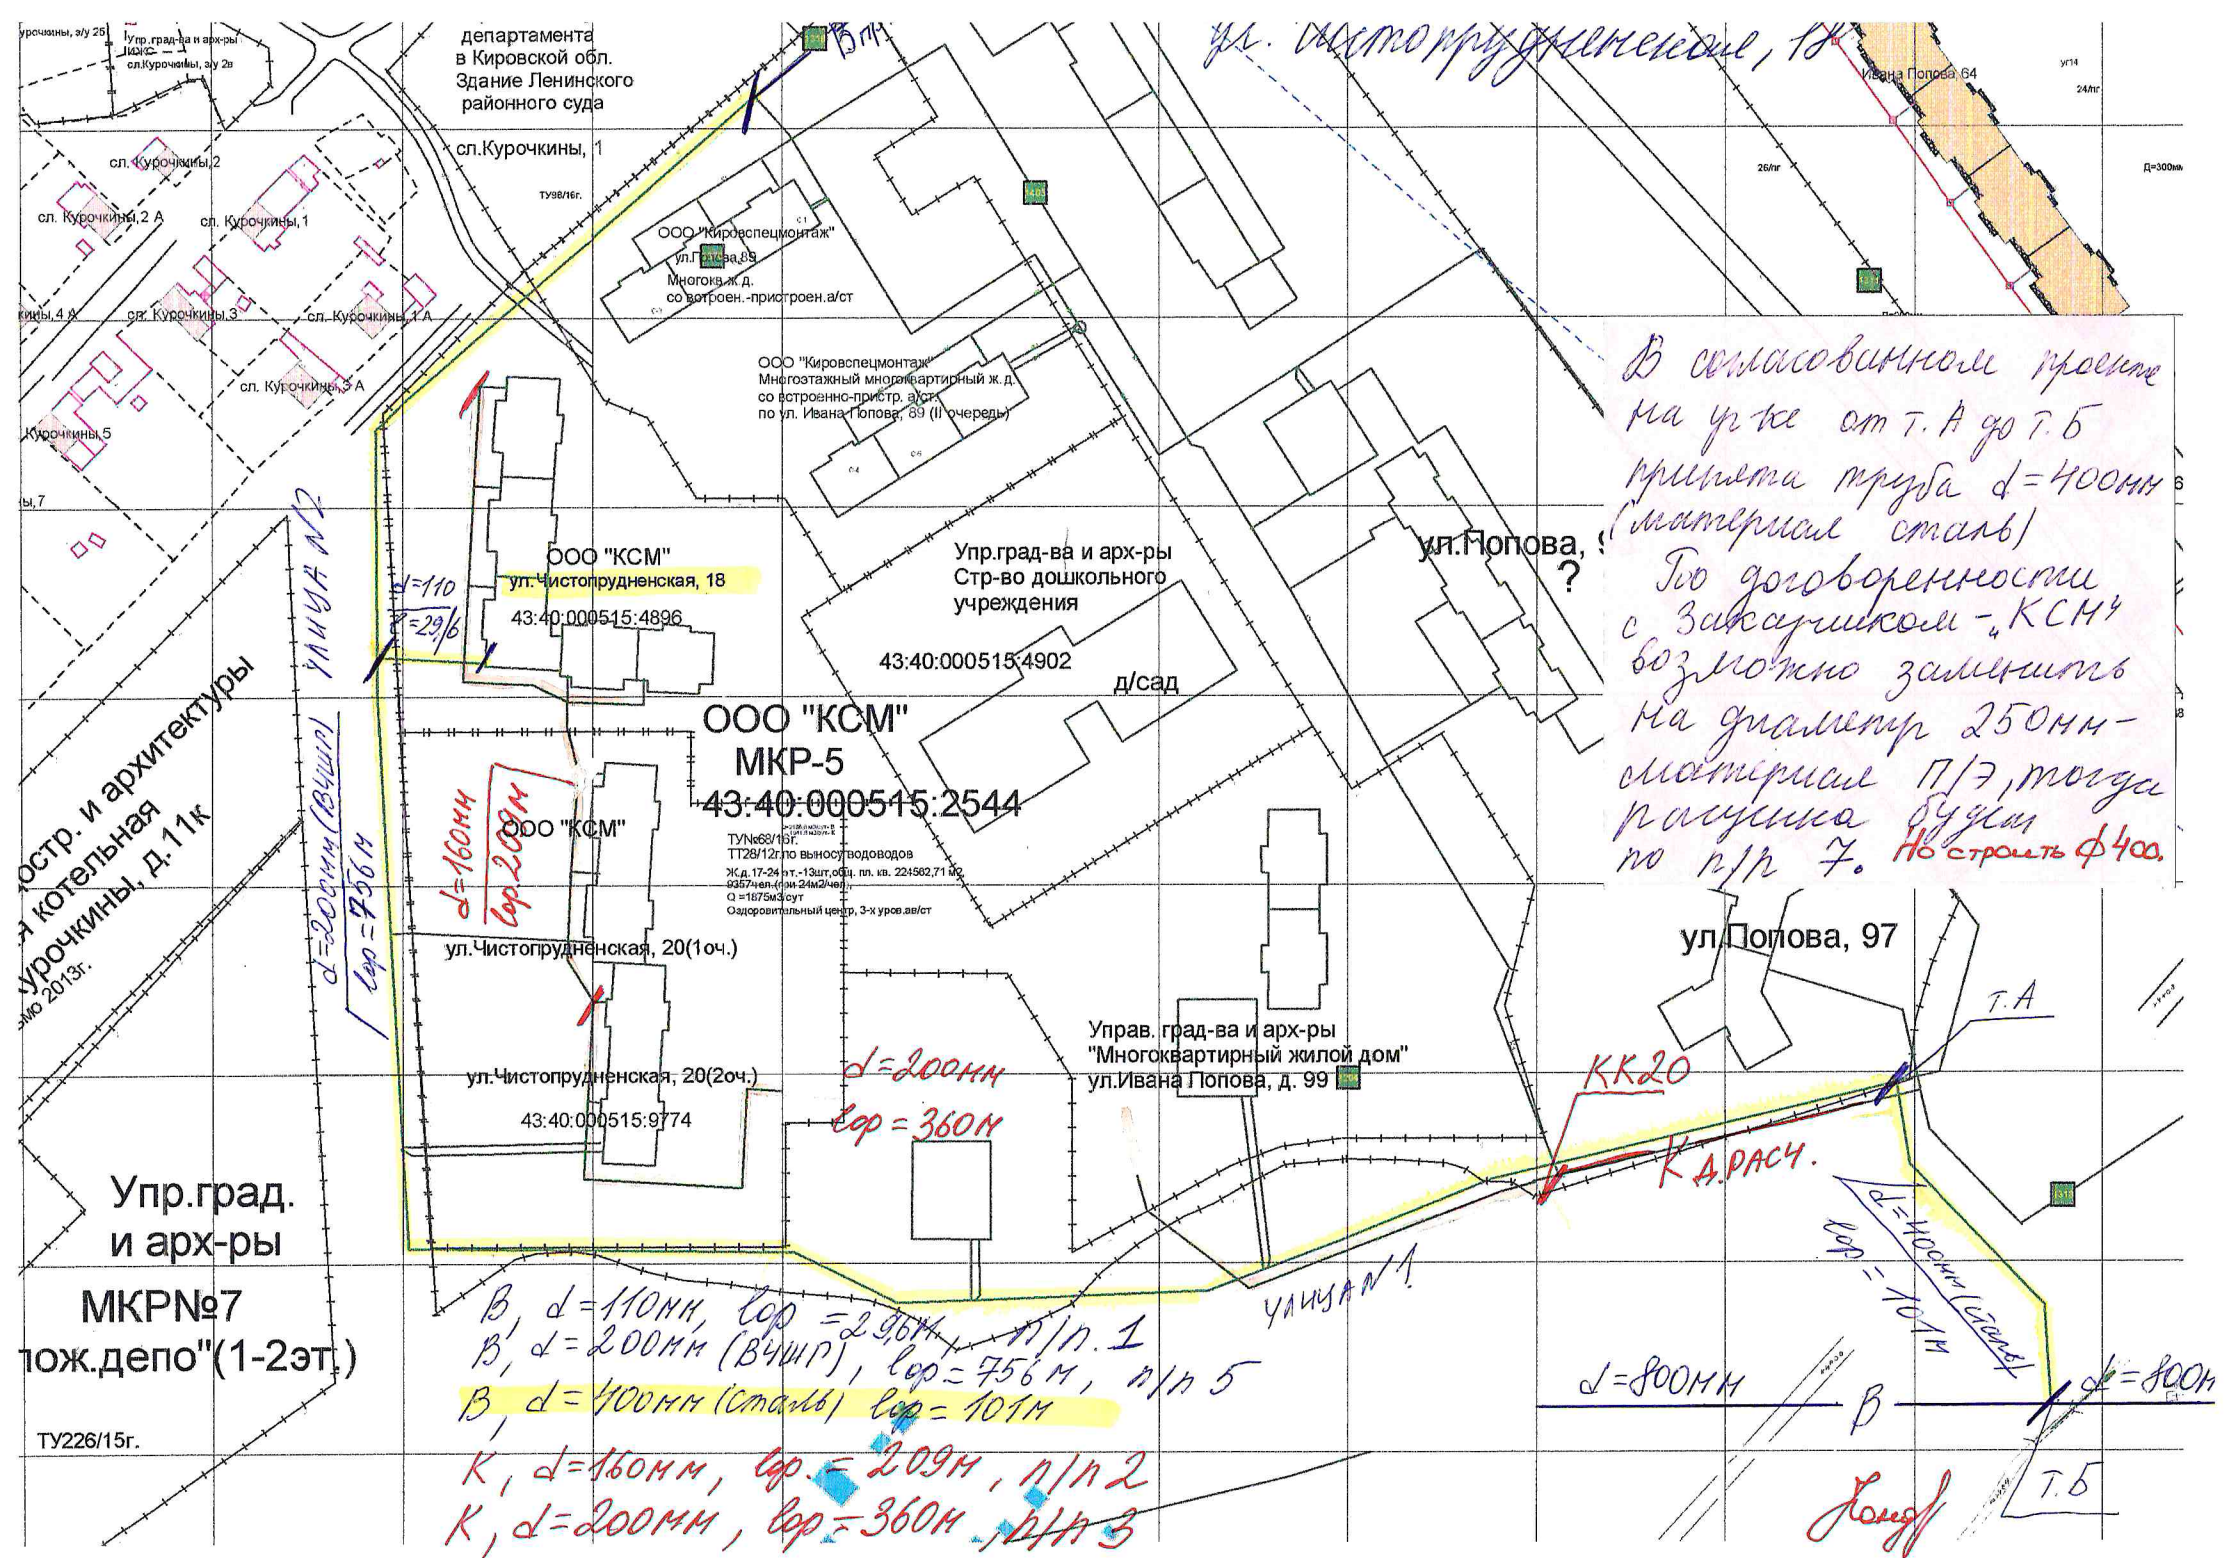 урочкины, з/у 25
Упр.град-ва и арх-ры
ИЖС
сл.Курочкины, з/у 2в
департамента
в Кировской обл.
Здание Ленинского
районного суда
сл.Курочкины, 1
ТУ98/16г.
ул. Чистопрудненская, 18
Ивана Попова, 64
уг14
24/пг
26/пг
Д=300мм
сл. Курочкины,2
сл. Курочкины,2 А
сл. Курочкины,1
кины,4 А
сл. Курочкины,3
сл. Курочкины,1 А
сл. Курочкины,3 А
Курочкины,5
ы,7
ООО "Кировспецмонтаж"
ул.Попова,89
Многокв.ж.д.
со встроен.-пристроен.а/ст
ООО "Кировспецмонтаж"
Многоэтажный многоквартирный ж.д.
со встроенно-пристр. а/ст.
по ул. Ивана Попова, 89 (II очередь)
В согласованном проекте
на уч-ке от т.А до т.Б
принята труба d=400мм
(материал сталь)
По договоренности
с Заказчиком-„КСМ"
возможно заменить
на диаметр 250мм-
материал П/Э, тогда
расценка будет
по п/п 7. Но строить ф400.
УЛИЦА N2
ООО "КСМ"
ул.Чистопрудненская, 18
43:40:000515:4896
d=110
l=29,6
Упр.град-ва и арх-ры
Стр-во дошкольного
учреждения
43:40:000515:4902
д/сад
ул.Попова, 9
?
ООО "КСМ"
МКР-5
43:40:000515:2544
ТУ№68/16г.
ТТ28/12г.по выносу водоводов
Ж.д.17-24 эт.-13шт,общ. пл. кв. 224562,71 м2,
9357чел.(при 24м2/чел),
Q =1875м3/сут
Оздоровительный центр, 3-х уров.ав/ст
d=200мм (ВЧШГ)
lор=756м
d=160мм
lор.209м
ООО "КСМ"
остр. и архитектуры
я котельная
курочкины, д.11к
ьмо 2013г.
ул.Чистопрудненская, 20(1оч.)
ул.Чистопрудненская, 20(2оч.)
43:40:000515:9774
d=200мм
lор=360м
Управ. град-ва и арх-ры
"Многоквартирный жилой дом"
ул.Ивана Попова, д. 99
ул.Попова, 97
т.А
КК20
К Д.РАСЧ.
УЛИЦА N1
d=400мм (сталь)
lор=101м
Упр.град.
и арх-ры
МКР№7
пож.депо"(1-2эт.)
ТУ226/15г.
В, d=110мм, lор=29,6м, п/п.1
В, d=200мм (ВЧШГ), lор=756м, п/п 5
В, d=400мм (сталь) lор=101м
К, d=160мм, lор.=209м, п/п 2
К, d=200мм, lор=360м, п/п 3
d=800мм
В
d=800м
т.Б